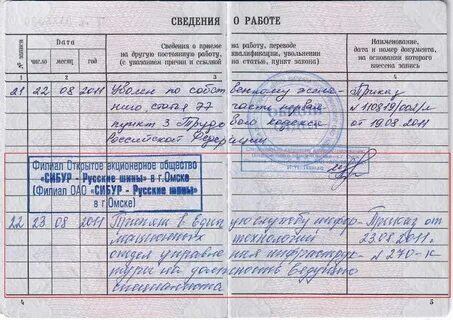 СВЕДЕНИЯ О РАБОТЕ
№ записи
Дата
число
месяц
год
Сведения о приеме на работу, переводе
на другую постоянную работу, квалификации, увольнении
(с указанием причин и ссылкой на статью, пункт закона)
Наименование,
дата и номер документа,
на основании которого
внесена запись
1
2
3
4
21 22 08 2011 Уволен по собственному желанию Приказ
статья 77 части первая № 110819/002/л
пункт 3 Трудового кодекса от 19.08.2011
Российской Федерации
Филиал Открытое акционерное общество
«СИБУР - Русские шины» в г.Омске
(Филиал ОАО «СИБУР - Русские шины»
в г.Омске)
22 23 08 2011 Принят в Единую службу информационных Приказ от
технологий 23.08.2011г.
отдел управления инфраструктуры № 270-к
на должность Ведущего
специалиста
4
5